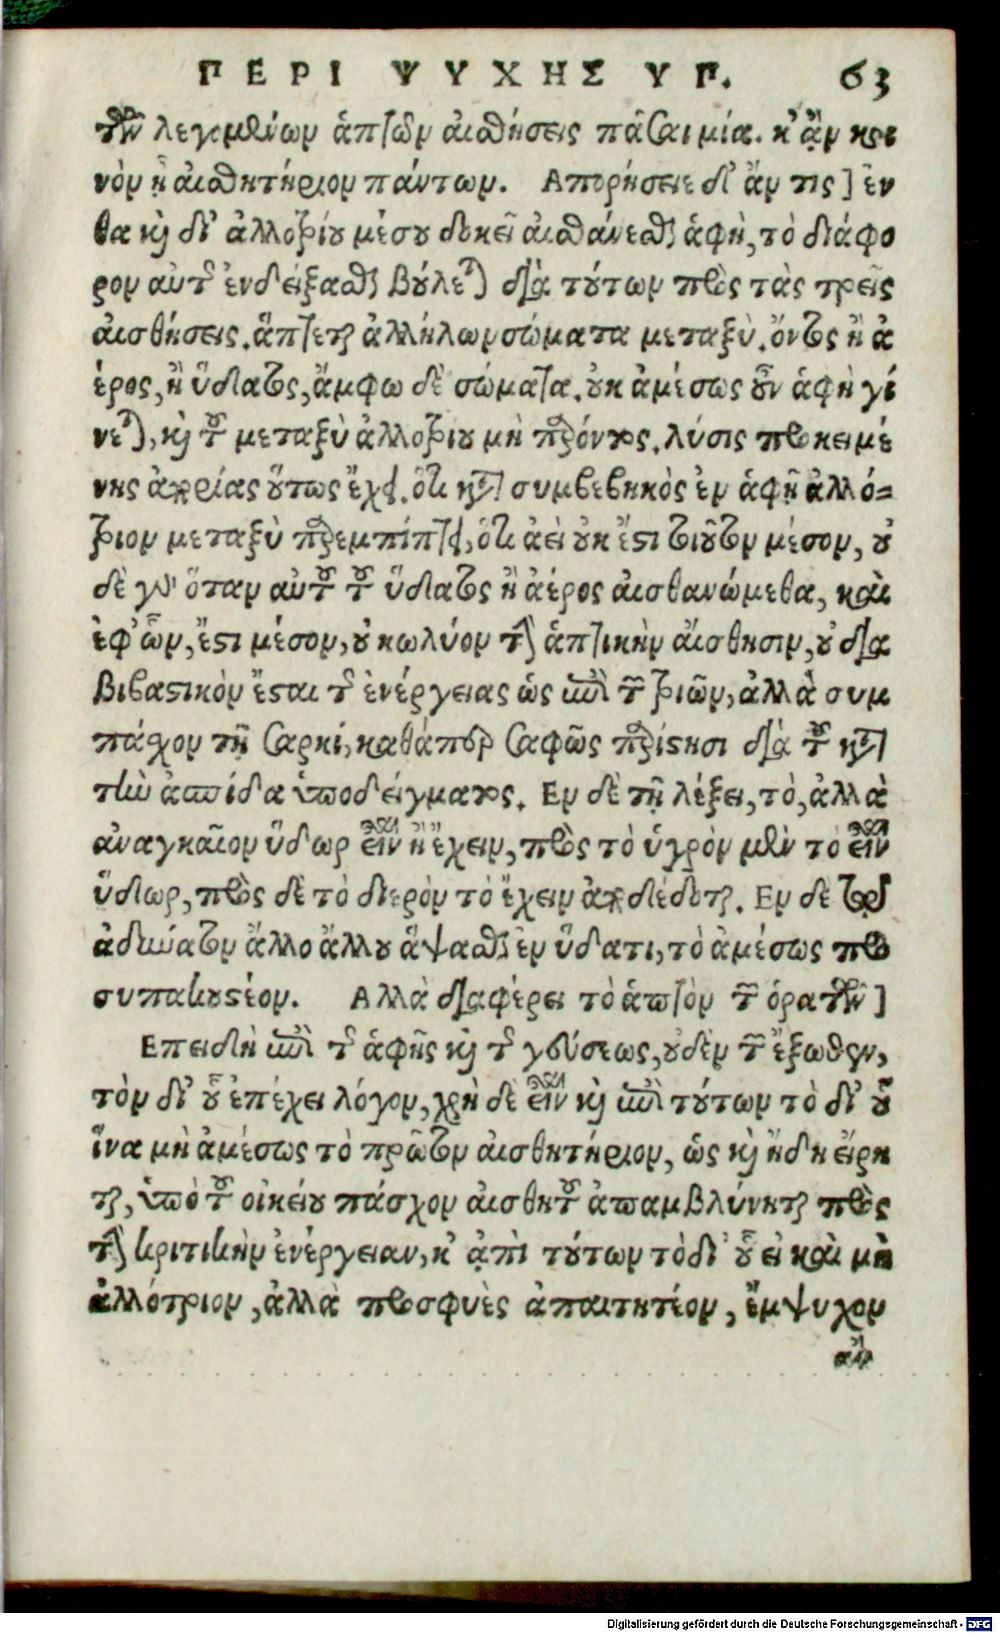 ΠΕΡΙ ΨΥΧΗΣ ΥΠ. 63
τῶν λεγομένων ἁπτῶν αἰσθήσεις πᾶσαι μία. κἂν κοι
νὸν ᾖ αἰσθητήριον πάντων. Απορήσειε δ' ἄν τις] ἐν
θα καὶ δι' ἀλλοτρίου μέσου δοκεῖ αἰσθάνεσθαι ἁφὴ, τὸ διάφο
ρον αὐτῆς ἐνδείξασθαι βούλεται διὰ τούτων πρὸς τὰς τρεῖς
αἰσθήσεις. ἅπτεται ἀλλήλων σώματα μεταξὺ. ὄντος ἢ ἀ
έρος, ἢ ὕδατος, ἄμφω δὲ σώματα. οὐκ ἀμέσως οὖν ἁφὴ γί
νεται, καὶ τοῦ μεταξὺ ἀλλοτρίου μὴ παρόντος. λύσις προκειμέ
νης ἀπορίας οὕτως ἔχει. ὅτι κατὰ συμβεβηκὸς ἐν ἁφῇ ἀλλό=
τριον μεταξὺ παρεμπίπτει, ὅτι ἀεὶ οὐκ ἔστι τοιοῦτον μέσον, οὐ
δὲ γὰρ ὅταν αὐτοῦ τοῦ ὕδατος ἢ ἀέρος αἰσθανώμεθα, καὶ
ἐφ' ὧν, ἔστι μέσον, οὐ κωλύον τὴν ἁπτικὴν αἴσθησιν, οὐ δια
βιβαστικὸν ἔσται τῆς ἐνέργειας ὡς ἐπὶ τῶν τριῶν, ἀλλὰ συμ
πάσχον τῇ σαρκί, καθάπερ σαφῶς παρίστησι διὰ τοῦ κατὰ
τὴν ἀσπίδα ὑποδείγματος. Εν δὲ τῇ λέξει, τὸ, ἀλλὰ
ἀναγκαῖον ὕδωρ εἶναι ἢ ἔχειν, πρὸς τὸ ὑγρὸν μὲν τὸ εἶναι
ὕδωρ, πρὸς δὲ τὸ διερὸν τὸ ἔχειν ἀποδέδοται. Εν δὲ τῷ
ἀδύνατον ἄλλο ἄλλου ἅψασθαι ἐν ὕδατι, τὸ ἀμέσως προ
συπακουστέον. Αλλὰ διαφέρει τὸ ἁπτὸν τῶν ὁρατῶν]
Επειδὴ ἐπὶ τῆς ἁφῆς καὶ τῆς γεύσεως, οὐδὲν τῶν ἔξωθεν,
τὸν δι' οὗ ἐπέχει λόγον, χρὴ δὲ εἶναι καὶ ἐπὶ τούτων τὸ δι' οὗ
ἵνα μὴ ἀμέσως τὸ πρῶτον αἰσθητήριον, ὡς καὶ ἤδη εἴρη
ται, ὑπὸ τοῦ οἰκείου πάσχον αἰσθητοῦ ἀπαμβλύνηται πρὸς
τὴν κριτικὴν ἐνέργειαν, κἀπὶ τούτων τὸ δι' οὗ εἰ καὶ μὴ
ἀλλότριον, ἀλλὰ προσφυὲς ἀπαιτητέον, ἔμψυχον
Digitalisierung gefördert durch die Deutsche Forschungsgemeinschaft - DFG